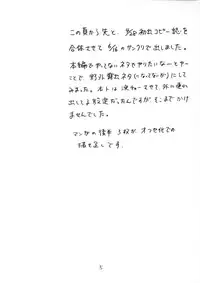 この頁から先と、8/12初出コピー誌を
合体させて8/16のサンクリで出しました。
本編でやれないネタをやりたいなーとゆー
ことで、野外露出ネタ(になってないか)にして
みました。ホントは決ちゅーさせて外に連れ
出してる設定だったんですが、そこまでかけ
ませんでした。
マンガの後半 5枚が オフセ化での
描き足しです。
5